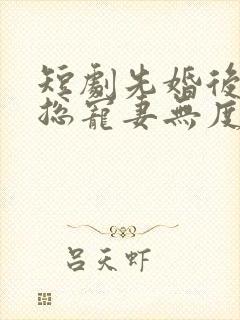 短劇先婚後
總寵妻無度
吕天虾